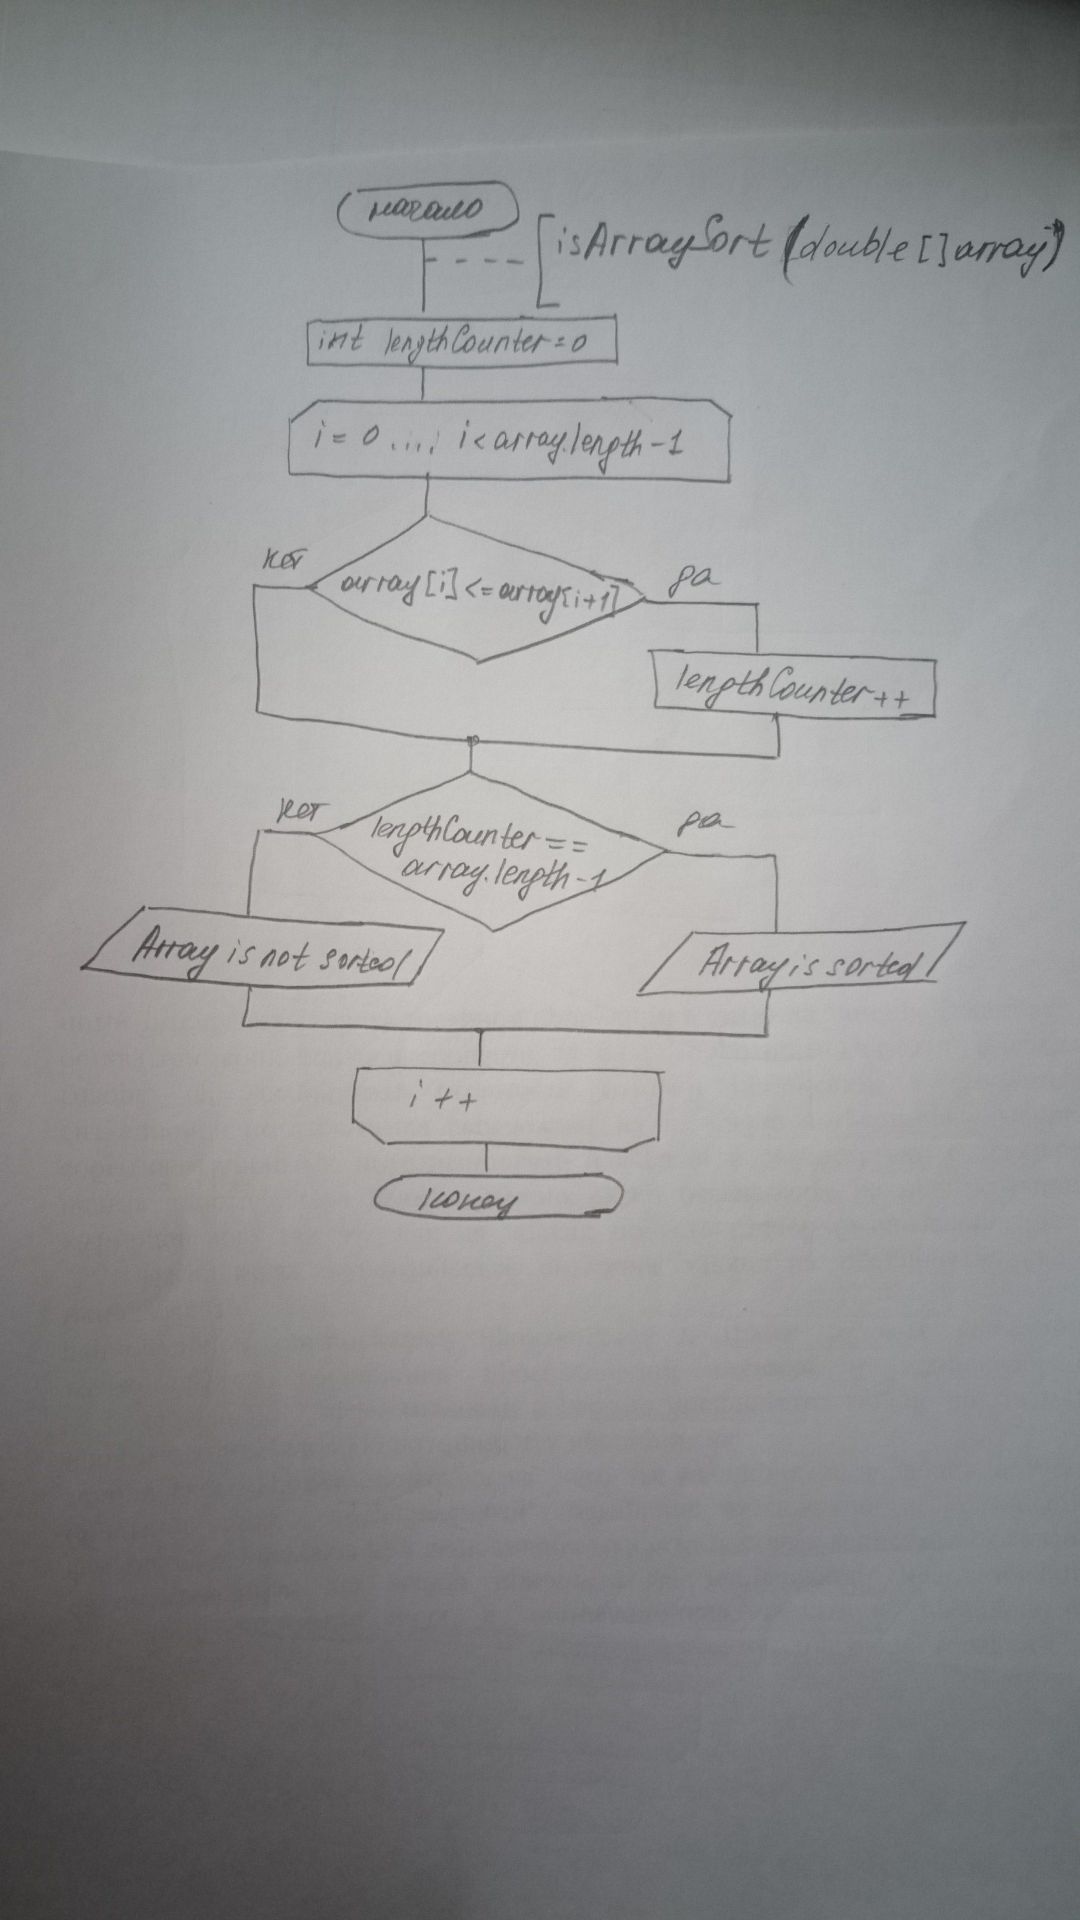 начало
isArraySort (double [] array)
int lengthCounter = 0
i = 0 ....; i < array.length - 1
нет
array [i] <= array[i+1]
да
lengthCounter ++
нет
lengthCounter ==
array.length - 1
да
Array is not sorted
Array is sorted
i ++
конец